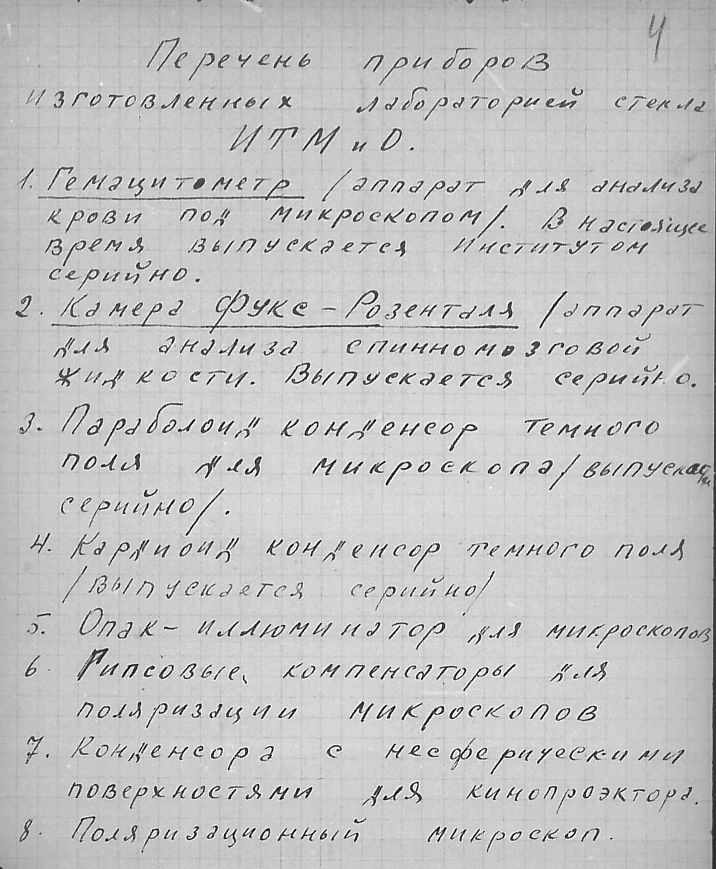 4
Перечень приборов
изготовленных лабораторией стекла
ИТМиО.
1. Гемацитометр /аппарат для анализа
крови под микроскопом/. В настоящее
время выпускается Институтом
серийно.
2. Камера Фукс-Розенталя /аппарат
для анализа спинномозговой
жидкости. Выпускается серийно.
3. Параболоид конденсор темного
поля для микроскопа /выпускается
серийно/.
4. Кардиоид конденсор темного поля
/выпускается серийно/
5. Опак-иллюминатор для микроскопов
6 Гипсовые компенсаторы для
поляризации микроскопов
7. Конденсора с несферическими
поверхностями для кинопроэктора.
8. Поляризационный микроскоп.